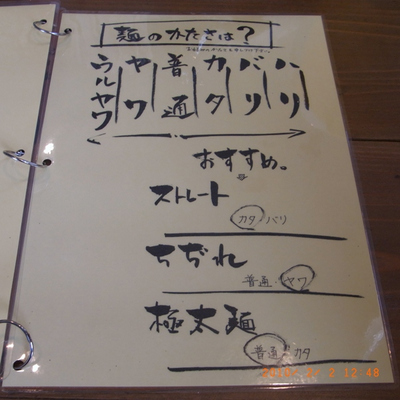 麺のかたさは?
ハリ
バリ
カタ
普通
ヤワ
ウルヤワ
おすすめ。
ストレート
カタ・バリ
ちぢれ
普通・ヤワ
極太麺
普通・カタ